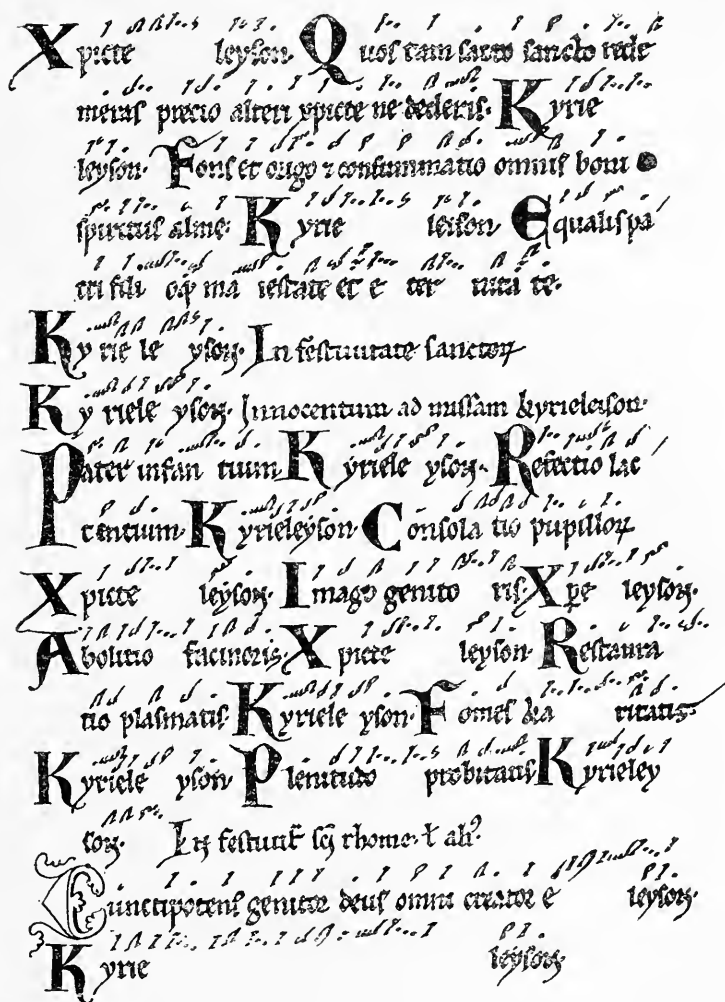 Xpicte leyson. Quos tam sacto sancto rede
meras precio alteri xpicte ne dederis. Kyrie
leyson. Fons et origo ⁊ consummatio omnis boni
spiritus alme. Kyrie leison. Equalis pa
tri fili oq; ma iestate et e ter nita te.
Ky rie le yson. In festiuitate sanctoꝝ
Ky riele yson. Innocentum ad missam kyrieleison.
Pater infan tium. Kyriele yson. Refectio lac
tentium. Kyrieleyson. Consola tio pupilloꝝ
Xpicte leyson. Imago genito ris. Xpe leyson.
Abolitio facinoris. Xpicte leyson. Restaura
tio plasmatis. Kyriele yson. Fomes ka ritatis.
Kyriele yson. Plenitudo probitatis Kyrieley
son. In festiuit sci thome. ł ali⁹.
Cunctipotens genitor deus omni creator e leyson.
Kyrie leyson.